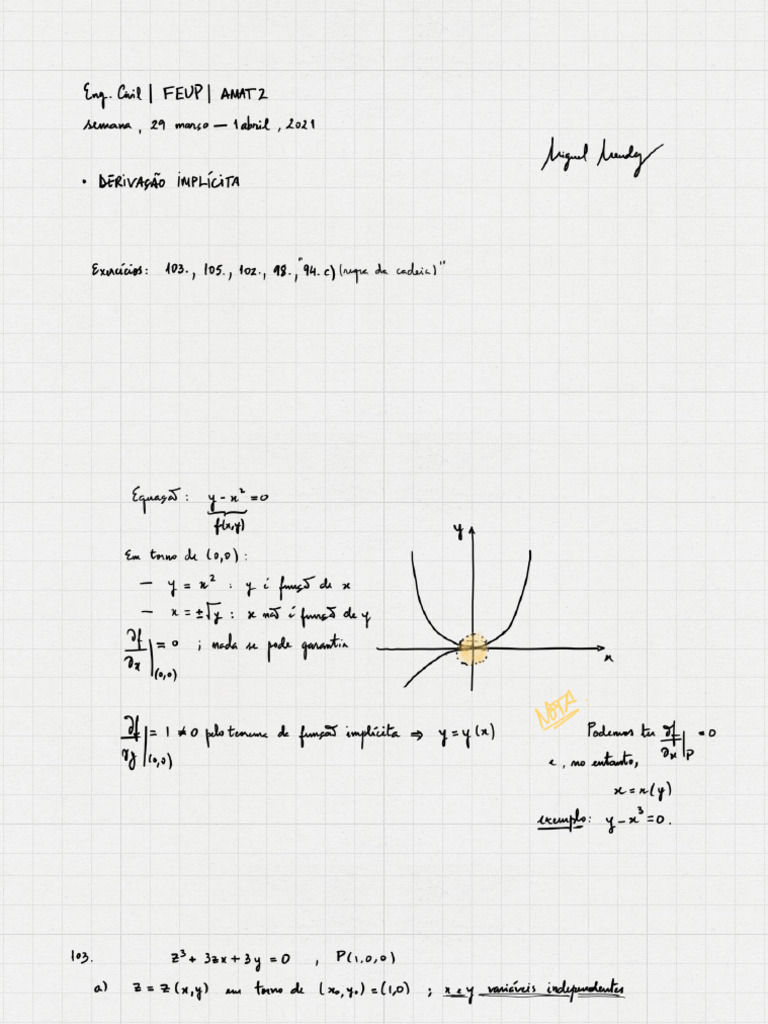 Eng. Civil | FEUP | AMAT 2
semana, 29 março — 1 abril, 2021
Miguel Mendes
• DERIVAÇÃO IMPLÍCITA
Exercícios: 103., 105., 102., 98., "94. c) (regra da cadeia)"
Equação: y - x² = 0
f(x,y)
Em torno de (0,0):
— y = x² : y é função de x
— x = ±√y : x não é função de y
∂f/∂x|(0,0) = 0 ; nada se pode garantir
y
x
∂f/∂y|(0,0) = 1 ≠ 0 pelo teorema de função implícita ⇒ y = y(x)
NOTA!
Podemos ter ∂f/∂x|P = 0
e, no entanto,
x = x(y)
exemplo: y - x³ = 0.
103. z³ + 3zx + 3y = 0 , P(1,0,0)
a) z = z(x,y) em torno de (x₀,y₀) = (1,0) ; x e y variáveis independentes